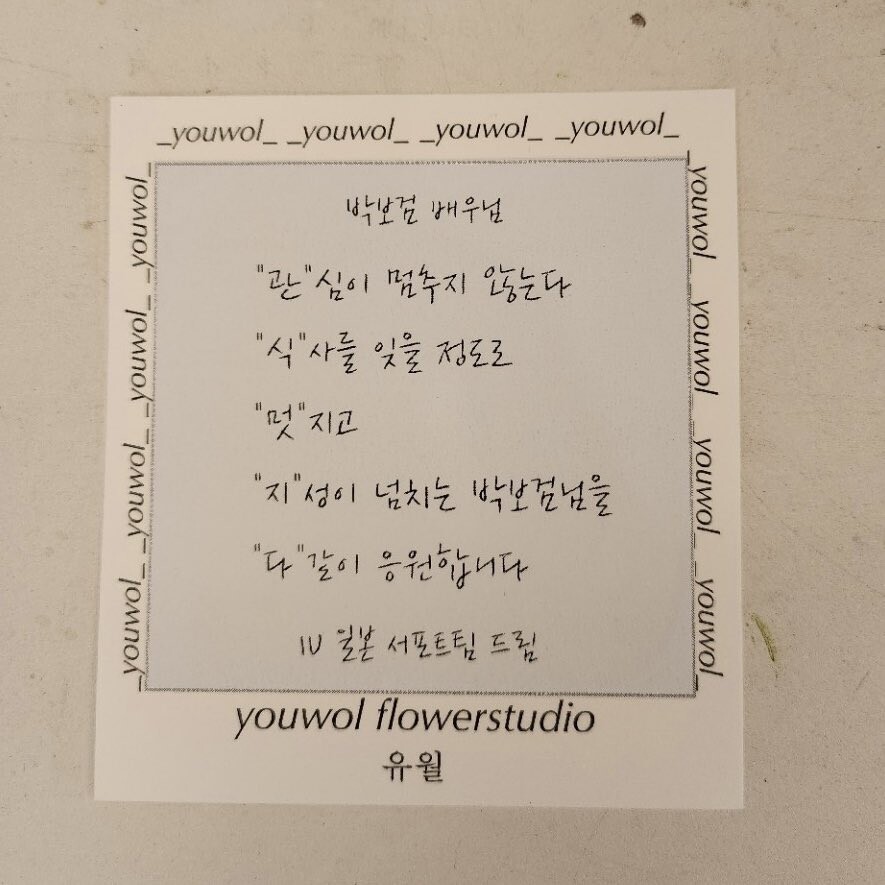 _youwol_ _youwol_ _youwol_ _youwol_
_youwol_ _youwol_ _youwol_ _youwol_
박보검 배우님
"관"심이 멈추지 않는다
"식"사를 잊을 정도로
"멋"지고
"지"성이 넘치는 박보검님을
"다"같이 응원합니다
IU 일본 서포트팀 드림
_youwol_ _youwol_ _youwol_ _youwol_
youwol flowerstudio
유월